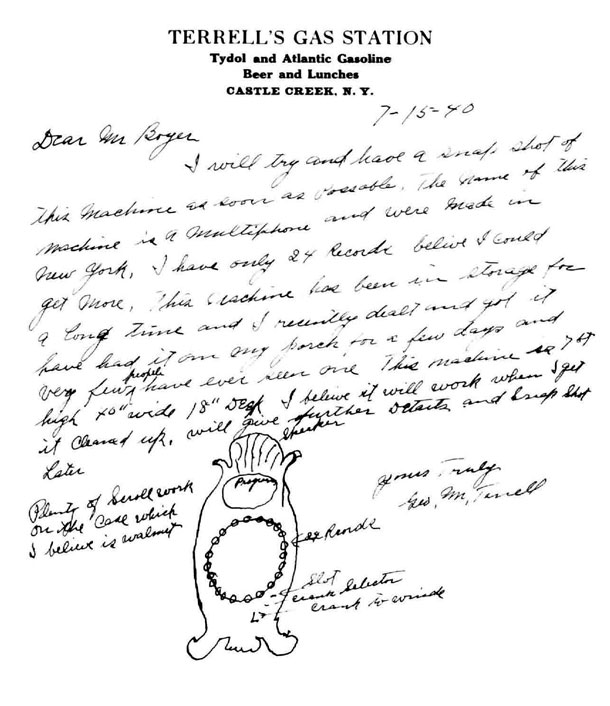 TERRELL'S GAS STATION
Tydol and Atlantic Gasoline
Beer and Lunches
CASTLE CREEK, N. Y.
7-15-40
Dear Mr Boyer
I will try and have a snap shot of
this Machine as soon as possable. The Name of this
Machine is a Multiphone and were Made in
New York, I have only 24 Records belive I could
get More, This Machine has been in storage for
a long time and I recently dealt and got it
have had it on my porch for a few days and
very few people have ever seen one This machine is 7 ft
high 40" wide 18" Deep I believe it will work when I get
it cleaned up, will give further Details and Snap Shot
Later
Speaker
Yours Truly
Geo. M. Terrell
Plenty of Scroll work
on the Case which
I believe is walnut
Records
Slot
crank Selector
crank to winde